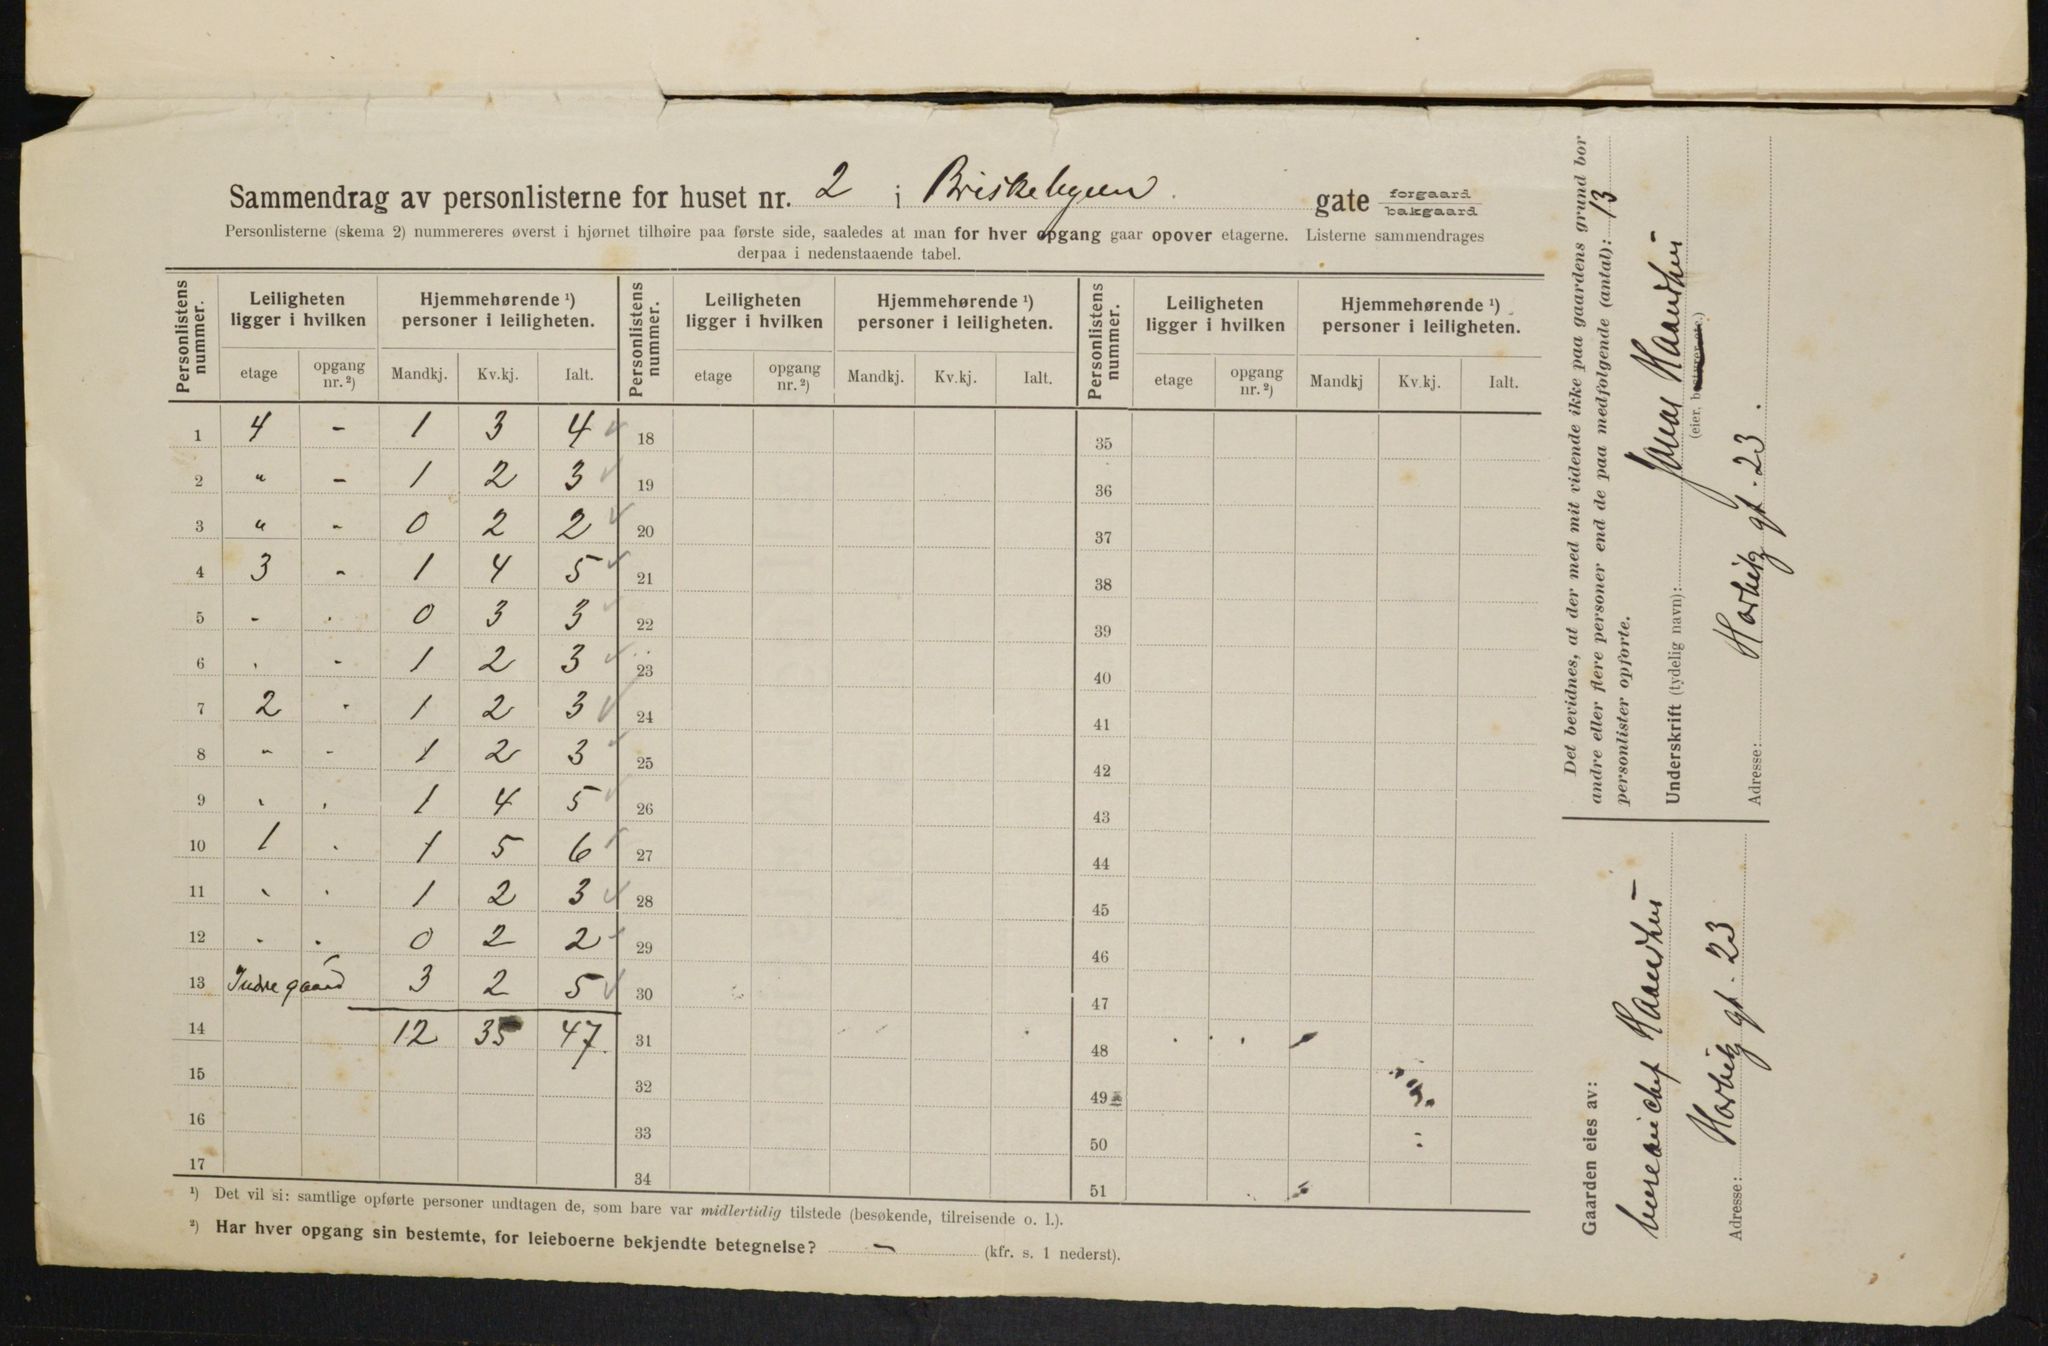 Sammendrag av personlisterne for huset nr. 2 i Briskebyen gate forgaard bakgaard
Personlisterne (skema 2) nummereres øverst i hjørnet tilhøire paa første side, saaledes at man for hver opgang gaar opover etagerne. Listerne sammendrages
derpaa i nedenstaaende tabel.
Personlistens nummer. Leiligheten ligger i hvilken Hjemmehørende ¹) personer i leiligheten. Personlistens nummer. Leiligheten ligger i hvilken Hjemmehørende ¹) personer i leiligheten. Personlistens nummer. Leiligheten ligger i hvilken Hjemmehørende ¹) personer i leiligheten.
etage opgang nr. ²) Mandkj. Kv.kj. Ialt. etage opgang nr. ²) Mandkj. Kv.kj. Ialt. etage opgang nr. ²) Mandkj Kv.kj. Ialt.
1 4 - 1 3 4 18 35
2 " - 1 2 3 19 36
3 " - 0 2 2 20 37
4 3 - 1 4 5 21 38
5 - . 0 3 3 22 39
6 . - 1 2 3 23 40
7 2 . 1 2 3 24 41
8 - - 1 2 3 25 42
9 . . 1 4 5 26 43
10 1 . 1 5 6 27 44
11 . . 1 2 3 28 45
12 . . 0 2 2 29 46
13 Indre gaard 3 2 5 30 47
14 12 35 47 31 48
15 32 49
16 33 50
17 34 51
¹) Det vil si: samtlige opførte personer undtagen de, som bare var midlertidig tilstede (besøkende, tilreisende o. l.).
²) Har hver opgang sin bestemte, for leieboerne bekjendte betegnelse? - (kfr. s. 1 nederst).
Det bevidnes, at der med mit vidende ikke paa gaardens grund bor
andre eller flere personer end de paa medfølgende (antal): 13
personlister opførte.
Underskrift (tydelig navn): Jonas
(eier, bestyrer etc.)
Adresse: gt. 23.
Gaarden eies av:
Adresse: gt. 23